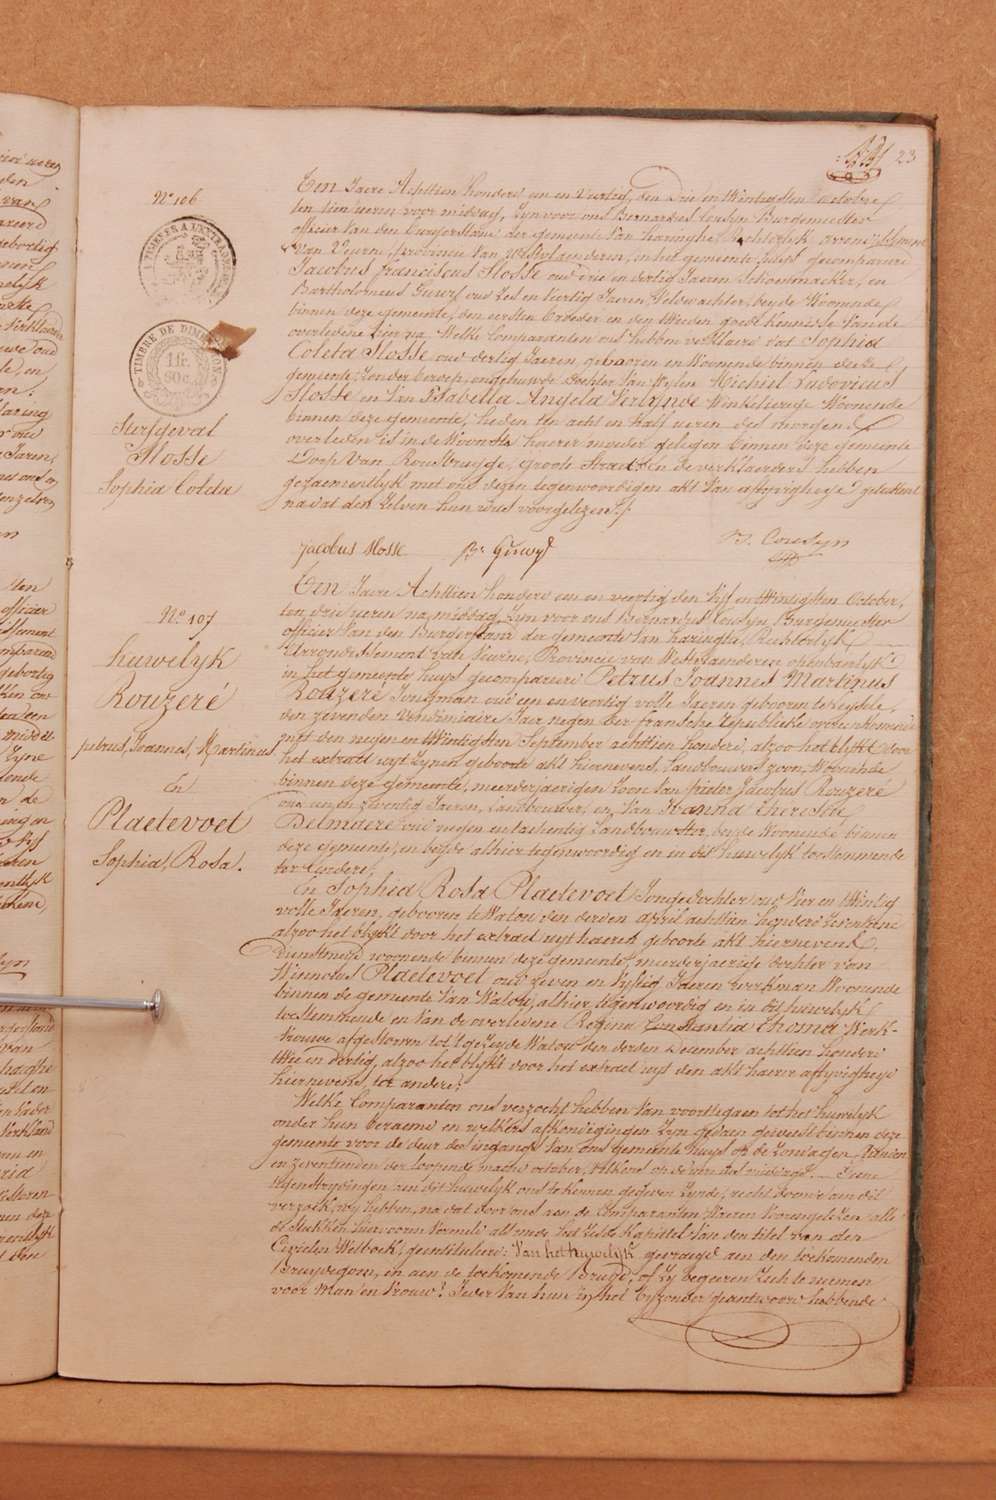 23
Nº 106
TIMBRE DE DIMENSION
1 fr.
50c.
Sterfgeval
Slosse
Sophia Coleta
Ten Jaere Achttien honderd een en Viertig, den Drie en Twintigsten October
ten tien ueren voor middag, Zyn voor ons Bernardus Cousyn Burgemeester
officier Van den Burgerstand der gemeente Van Haringhe, Rechterlyk arrondissement
Van Veurne, provincie Van Westvlaenderen, in het gemeente huis gecompareerd
Jacobus Franciscus Slosse oud drie en dertig Jaeren Schoenmaeker, en
Bartholomeus Guwy oud Zes en Viertig Jaeren, Veldwachter, beyde Woonende
binnen deze gemeente, den eersten Broeder en den tweeden goede kennisse Van de
overledene hier na. Welke Comparanten ons hebben verklaerd dat Sophia
Coleta Slosse oud dertig Jaeren, gebooren en Woonende binnen deze
gemeente, Zonder beroep, ongehuwde dochter Van wylen Michiel Ludovicus
Slosse en Van Isabella Angela Verlynde Winkelierige Woonende
binnen deze gemeente, heden ten acht en half ueren des morgens
overleden is in de Woonste haerer moeder gelegen binnen deze gemeente
Dorp Van Rousbrugge, groote Straet en de verklaerders hebben
gezaementlyk met ons dezen tegenwoordigen akt Van aflyvigheyd geteekend
na dat den Zelven hun was voorgelezen./.
jacobus slosse B. Guwy B. Cousyn
Nº 107
huwelyk
Rouzeré
petrus, Joannes, Martinus
En
Plaetevoet
Sophia, Rosa.
Ten Jaere Achttien honderd een en veertig den Vyf en Twintigsten October,
ten drie ueren na middag, Zyn voor ons Bernardus Cousyn, Burgemeester
officier Van den Burgerstand der gemeente Van Haringhe, Rechterlyk
Arrondissement van Veurne, Provincie van Westvlaenderen openbaerlyk
in het gemeente huys gecompareerd Petrus Joannes Martinus
Rouzeré Jongman oud een en veertig volle Jaeren gebooren te Reysele,
den zevenden Vendemiaire Jaer negen der fransche republieke overeenkomend
met den negen en Twintigsten September achttien honderd, alzoo het blykt door
het extract uyt zynen geboorte akt hiernevens, Landbouwers zoon, Woonende
binnen deze gemeente, meerderjaerigen Zoon Van pieter Jacobus Rouzeré
oud een en zeventig Jaeren, Landbouwer, en Van Joanna Theresia
Delmaere oud negen en tachentig Landbouwster, beyde Woonende binnen
deze gemeente, en beyde alhier tegenwoordig en in dit huwelyk toestemmende
ter eendere;
En Sophia Rosa Plaetevoet Jonge dochter oud Vier en Twintig
volle Jaeren, gebooren te Watou den derden april achttien honderd Zeventiene
alzoo het blykt door het extract uyt haeren geboorte akt hiernevens,
Dienstmeyd woonende binnen deze gemeente, meerderjaerige dochter van
Winnotus Plaetevoet oud Zeven en Vyftig Jaeren Werkman Woonende
binnen de gemeente Van Watou, alhier tegenwoordig en in dit huwelyk
toestemmende en Van de overledene Regina Constantia Thoma Werk-
vrouwe afgestorven tot 't gezeyde Watou den derden December achttien honderd
twee en dertig, alzoo het blykt voor het extract uyt den akt haerer aflyvigheyd
hiernevens, ter andere;
Welke Comparanten ons verzocht hebben Van voorttegaen tot het huwelyk
onder hun beraemd en welkers afkondigingen Zyn gedaen geweest binnen deze
gemeente voor de deur des ingangs Van ons gemeente huys op de Zondagen Thienen
en zeventienden der loopende maend october, telkens op de van des middags. Geene
tegenstryvingen aen dit huwelyk ons te kennen gegeven Zynde; recht doende aen dit
verzoek, wy hebben, na dat door ons aen de Comparanten Waeren Voorengelezen alle
de stukken hier voren Vermeld als mede het Zesde Kapittel Van den titel van den
Civielen Wetboek, geintituleerd: Van het huwelyk gevraegd aen den toekomenden
Bruydegom, en aen de toekomende Bruyd; of Zy begeeren Zich te nemen
voor Man en Vrouw? Ieder Van hun in 't het byzonder geantwoord hebbende